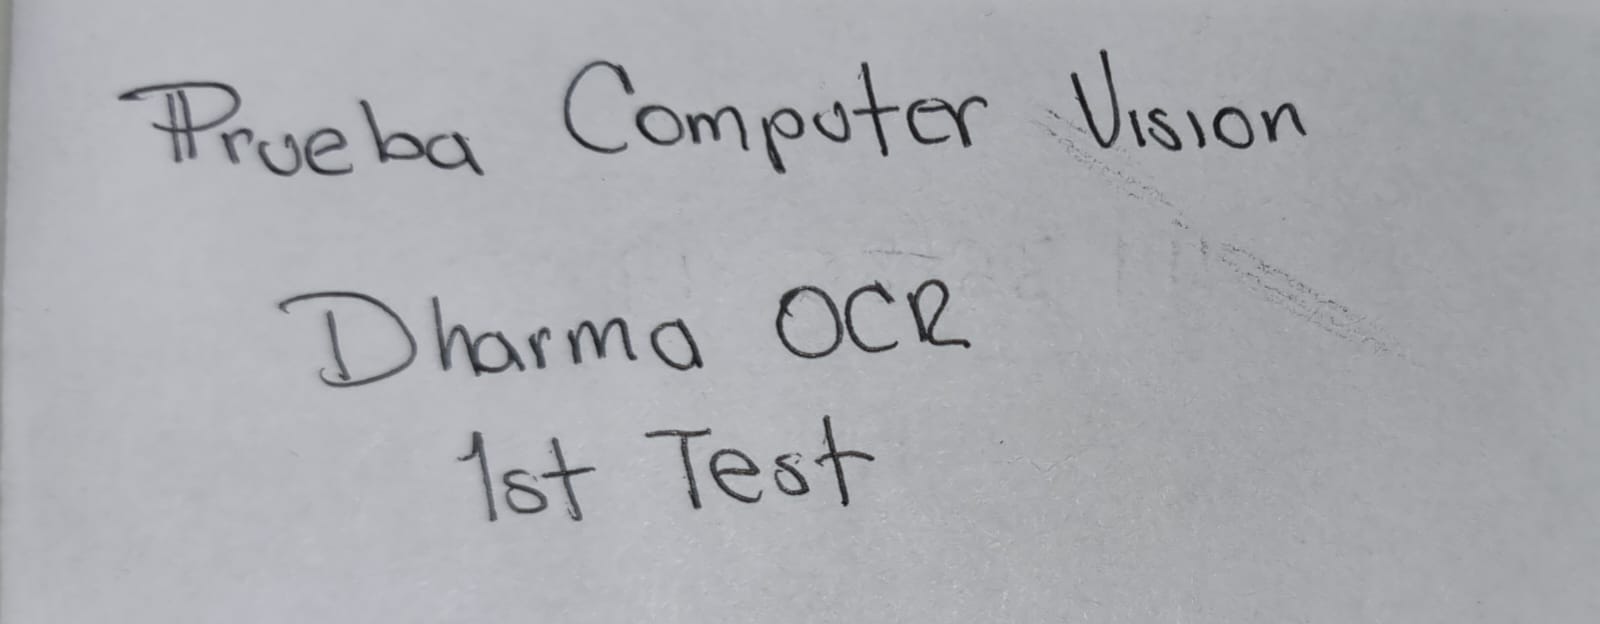 Prueba Computer Vision
Dharma OCR
1st Test